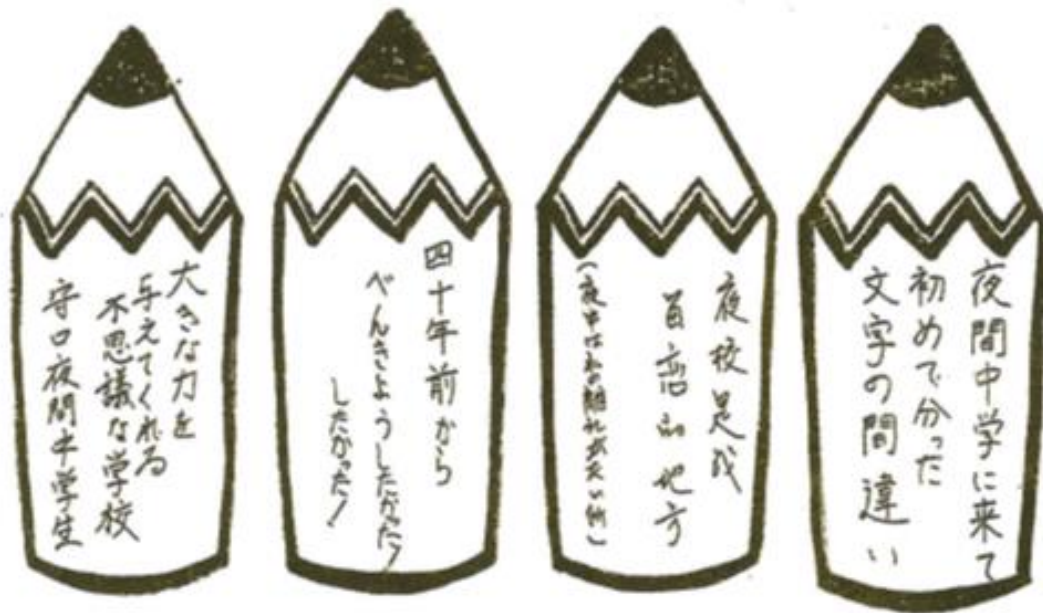 夜間中学に来て
初めで分った
文字の間違い
夜校是我
恋的地方
(夜中は私の離れがたい所)
四十年前から
べんきようしたかった!
したかった!
大きな力を
与えてくれる
不思議な学校
守口夜間中学生